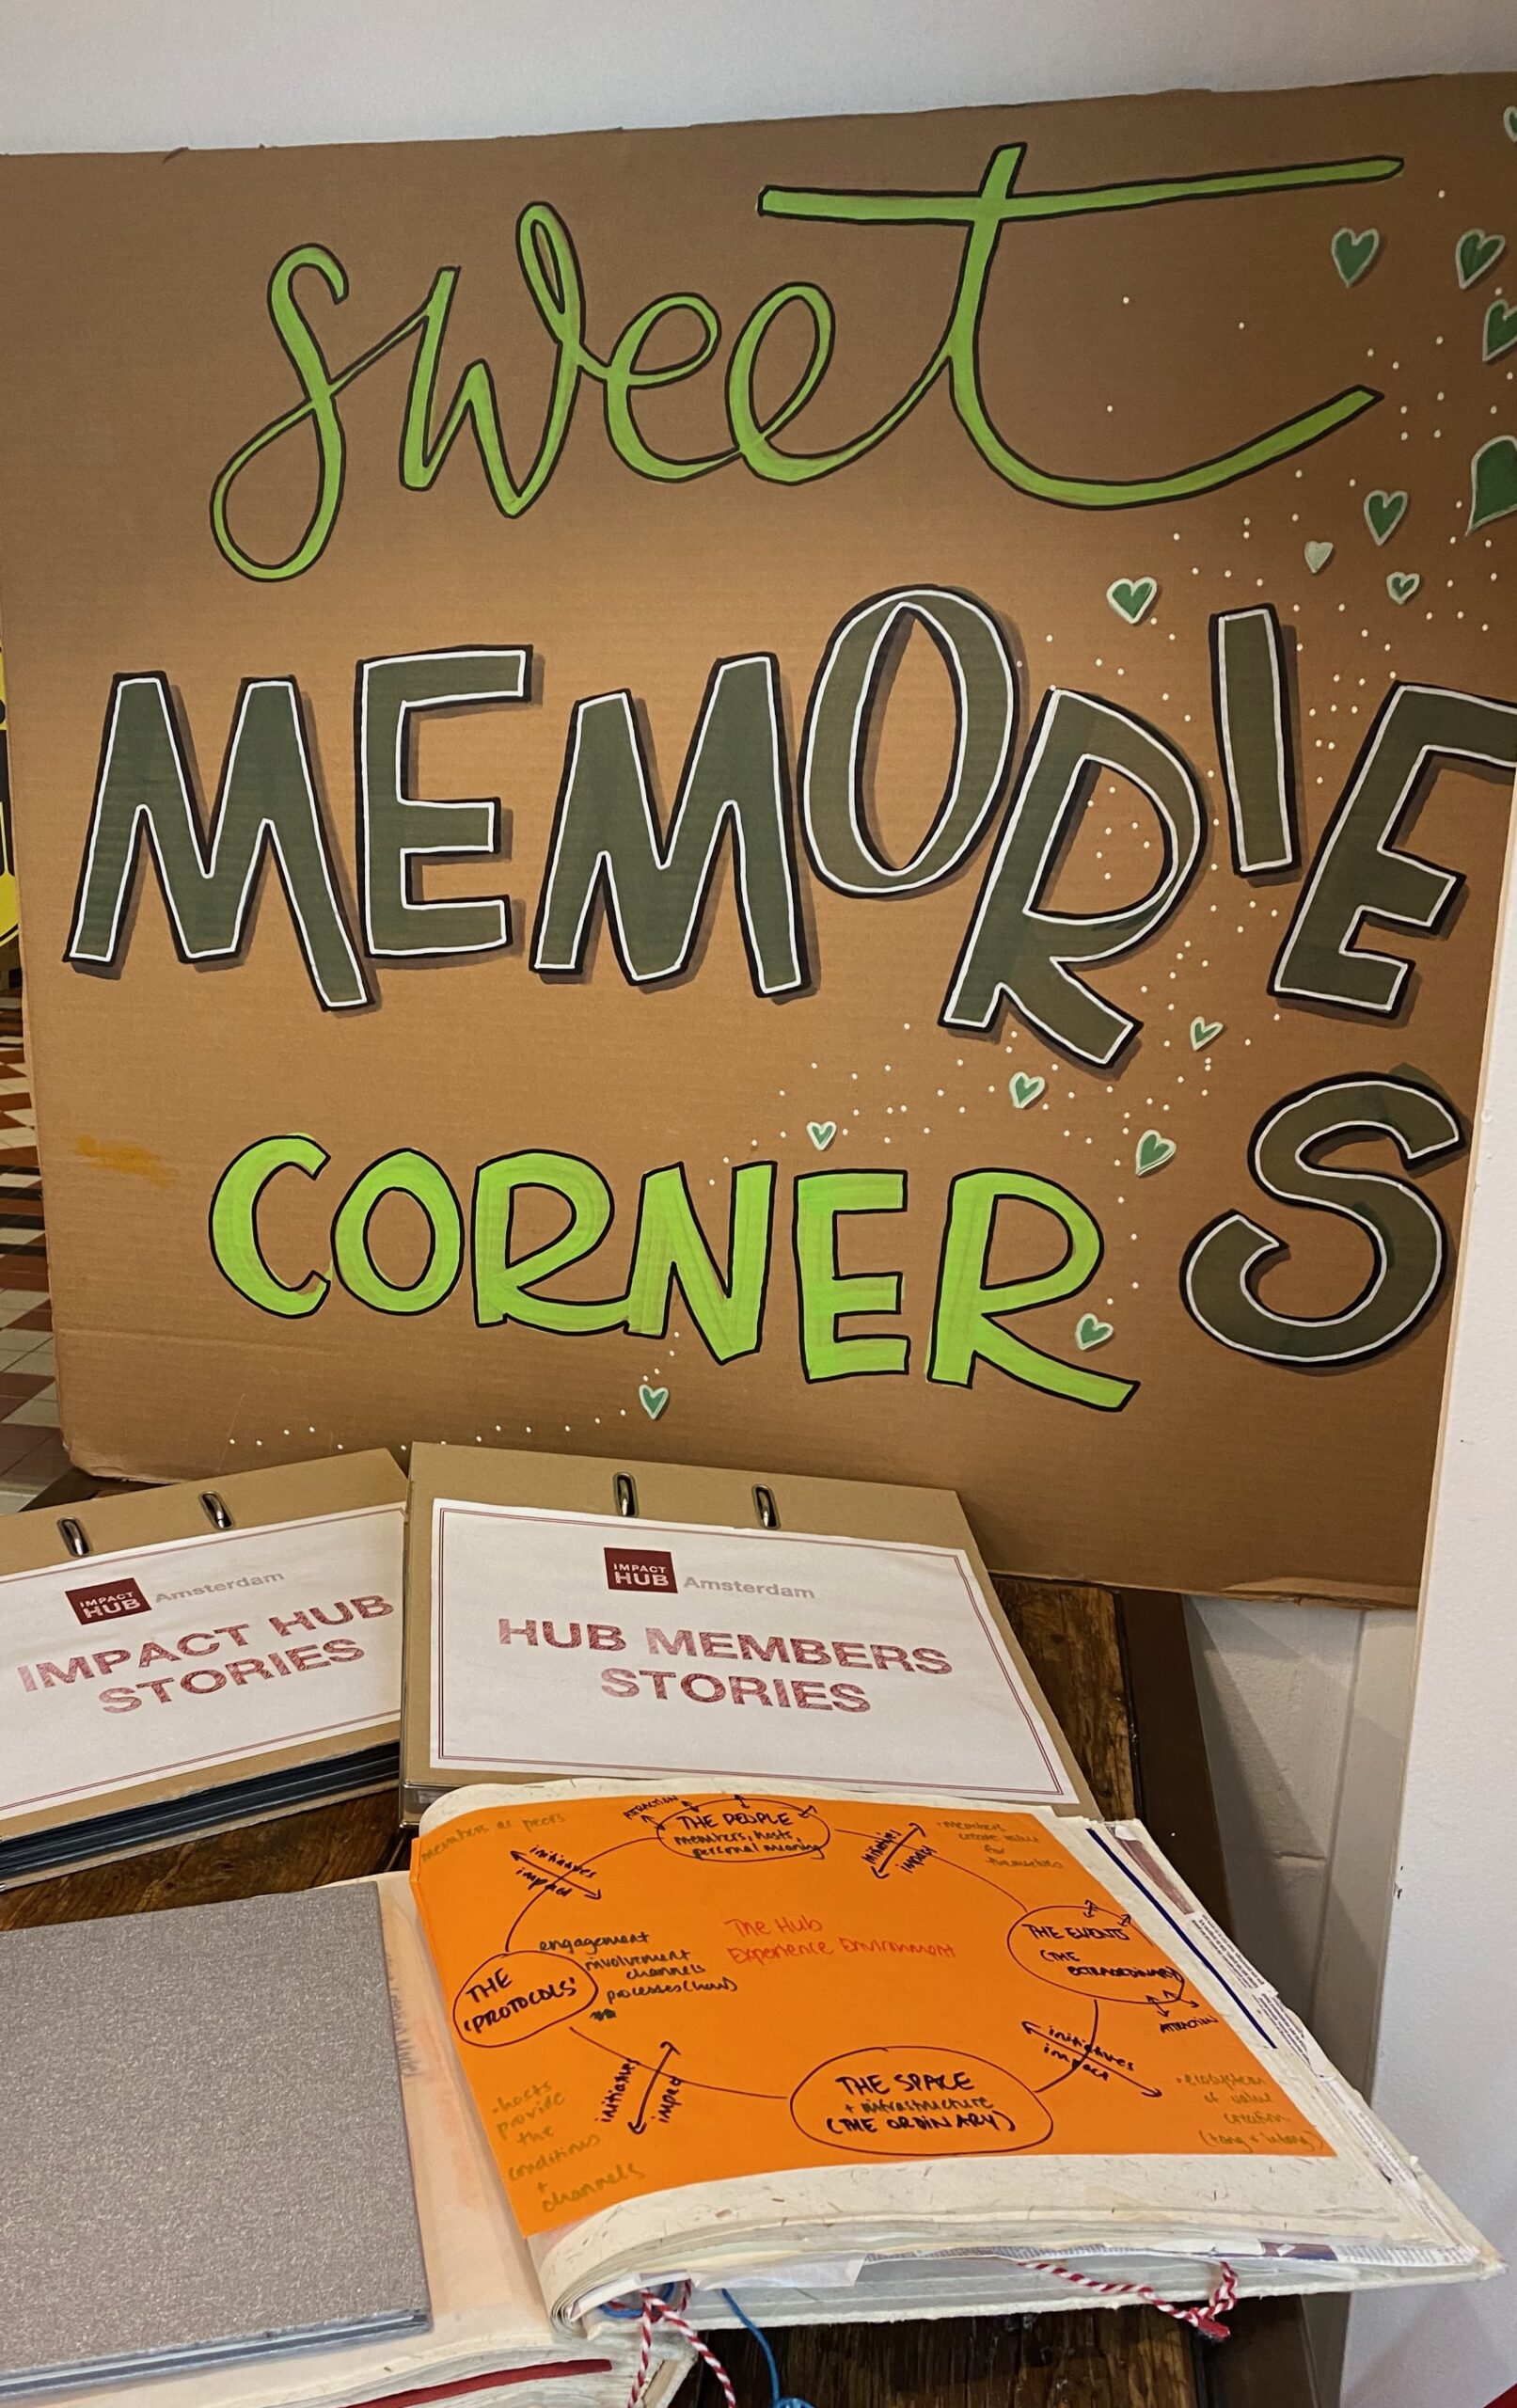 sweet
MEMORIES
CORNER
IMPACT
HUB
Amsterdam
IMPACT HUB
STORIES
IMPACT
HUB
Amsterdam
HUB MEMBERS
STORIES
members as peers
ATTRACTION
THE PEOPLE
members, hosts,
personal meaning
initiatives
impact
initiatives
impact
• members
create value
for
themselves
The Hub
Experience Environment
engagement
involvement
channels
processes (hard)
THE
'PROTOCOLS'
THE EVENTS
(THE
EXTRAORDINARY)
ATTRACTION
initiatives
impact
initiatives
impact
THE SPACE
+ infrastructure
(THE ORDINARY)
• hosts
provide
the
conditions
+
channels
• ecosystem
of value
creation